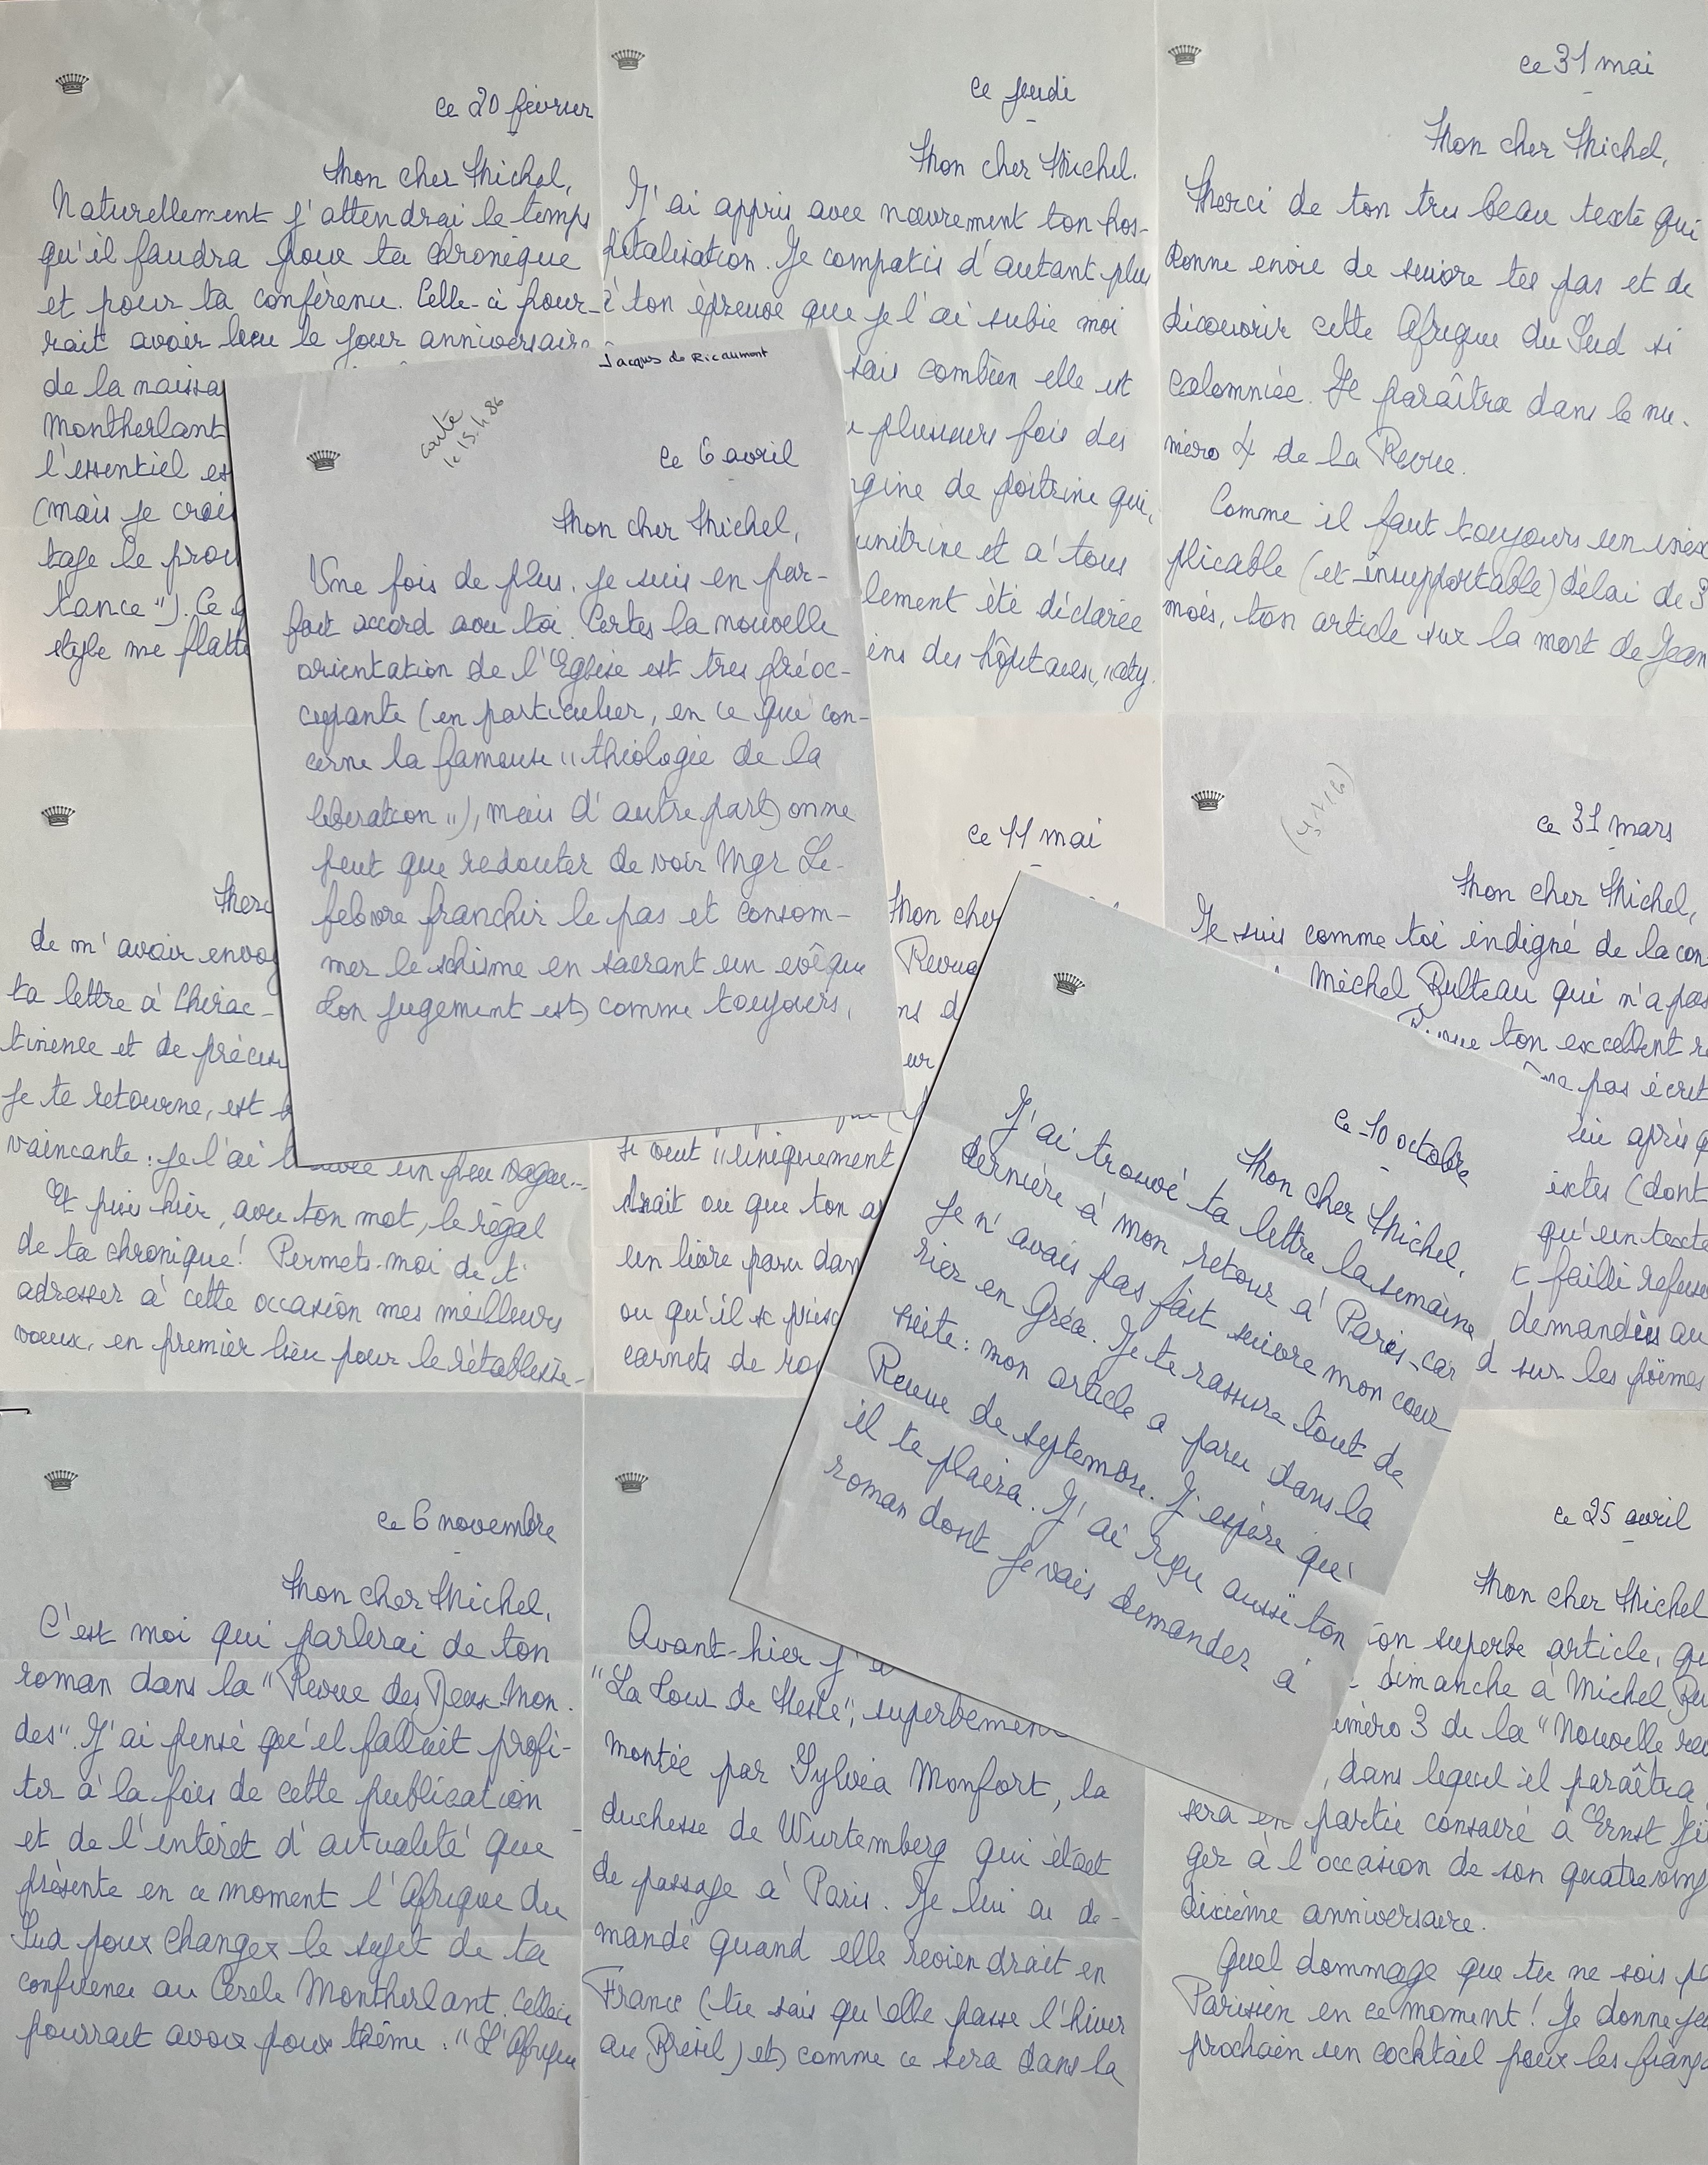 ce 20 février
Mon cher Michel,
Naturellement j'attendrai le temps
qu'il faudra pour ta chronique
et pour ta conférence. Celle-ci pour-
rait avoir lieu le jour anniversaire
de la naissa
Montherlant
l'essentiel es
(mais je croi
tage le prou
tance"). Ce
style me flatte
ce jeudi
Mon cher Michel.
J'ai appris avec navrement ton hos-
pitalisation. Je compatis d'autant plus
à ton épreuve que je l'ai subie moi
sais combien elle est
plusieurs fois des
gine de poitrine qui,
unitrine et à tous
lement été déclarée
ens des hôpitaux, "aty.
ce 31 mai
Mon cher Michel,
Merci de ton très beau texte qui
donne envie de suivre tes pas et de
découvrir cette Afrique du Sud si
calomniée. Il paraîtra dans le nu-
méro 4 de la Revue.
Comme il faut toujours un inex
plicable (et insupportable) délai de 3
mois, ton article sur la mort de Jean
Jacques de Ricaumont
le 15.4.86
ce 6 avril
Mon cher Michel,
Une fois de plus, je suis en par-
fait accord avec toi. Certes la nouvelle
orientation de l'Eglise est très préoc-
cupante (en particulier, en ce qui con-
cerne la fameuse "théologie de la
libération"), mais d'autre part, on ne
peut que redouter de voir Mgr Le-
febvre franchir le pas et consom-
mer le schisme en sacrant un évêque
Ton jugement est, comme toujours,
Merc
de m'avoir envoy
ta lettre à Chirac-
tinence et de précisi
je te retourne, est
vaincante : je l'ai trouvée un peu vague...
Et puis hier, avec ton mot, le régal
de ta chronique! Permets-moi de t'
adresser à cette occasion mes meilleurs
vœux, en premier lieu pour le rétablisse-
ce 11 mai
Mon cher
Revue
ns d
ur
se veut "uniquement
drait ou que ton a
un livre paru dan
ou qu'il se
carnets de ro
ce 31 mars
Mon cher Michel,
Je suis comme toi indigné de la con
Michel Bulteau qui n'a pas
ton excellent r
pas écrit
lui après
textes (dont
qu'un texte
failli refuse
demandés au
sur les poèmes
ce 10 octobre
Mon cher Michel,
J'ai trouvé ta lettre la semaine
dernière à mon retour à Paris, car
je n'avais pas fait suivre mon cour
rier en Grèce. Je te rassure tout de
suite : mon article a paru dans la
Revue de septembre. J'espère qu'
il te plaira. J'ai reçu aussi ton
roman dont je vais demander à
ce 6 novembre
Mon cher Michel,
C'est moi qui parlerai de ton
roman dans la "Revue des Deux-Mon-
des". J'ai pensé qu'il fallait profi-
ter à la fois de cette publication
et de l'intérêt d'actualité que
présente en ce moment l'Afrique du
Sud pour changer le sujet de ta
conférence au Cercle Montherlant. Celle-ci
pourrait avoir pour thème : "L'Afrique
Avant-hier j'
"La Tour de Nesle", superbement
montée par Sylvia Monfort, la
duchesse de Wurtemberg qui était
de passage à Paris. Je lui ai de-
mandé quand elle reviendrait en
France (tu sais qu'elle passe l'hiver
au Brésil) et, comme ce sera dans la
ce 25 avril
Mon cher Michel
ton superbe article, qu
dimanche à Michel Bu
uméro 3 de la "Nouvelle rev
, dans lequel il paraîtra
sera en partie consacré à Ernst Jün
ger à l'occasion de son quatre-ving
dixième anniversaire.
Quel dommage que tu ne sois pa
Parisien en ce moment! Je donne jeu
prochain un cocktail pour les fianç